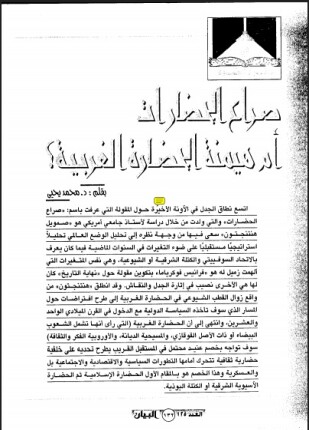 صراع الحضارات
أم هيمنة الحضارة الغربية؟
بقلم: د. محمد يحيى
اتسع نطاق الجدل في الآونة الأخيرة حول المقولة التي عرفت باسم: «صراع
الحضارات»، والتي ولدت من خلال دراسة لأستاذ جامعي أمريكي هو «صمويل
هنتنجتون»، سعى فيها من وجهة نظره إلى تحليل الوضع العالمي تحليلاً
استراتيجيّاً مستقبليّاً على ضوء التغيرات في السنوات الماضية فيما كان يعرف
بالاتحاد السوفييتي والكتلة الشرقية أو الشيوعية، وهي نفس المتغيرات التي
ألهمت زميل له هو «فرانسيس فوكوياما» بتكوين مقولة حول «نهاية التاريخ» كان
لها هي الأخرى نصيب في إثارة الجدل والنقاش. وقد انطلق «هنتنجتون» من
واقع زوال القطب الشيوعي في الحضارة الغربية إلى طرح افتراضات حول
المسار الذي سوف تأخذه السياسة الدولية مع الدخول في القرن الميلادي الواحد
والعشرين، وانتهى إلى أن الحضارة الغربية (التي رأى أنها تشمل الشعوب
البيضاء أو ذات الأصل القوقازي، والمسيحية الديانة، والأوروبية الفكر والثقافة)
سوف تواجه بخصم عنيد محتمل في المستقبل القريب يطرح تحديه على خلفية
حضارية ثقافية تتحرك أمامها التطورات السياسية والاقتصادية والاجتماعية بل
والعسكرية وهذا الخصم هو بالمقام الأول الحضارة الإسلامية ثم الحضارة
الآسيوية الشرقية أو الكتلة البوذية.
العدد ١٢٥ البيان ١٣٦